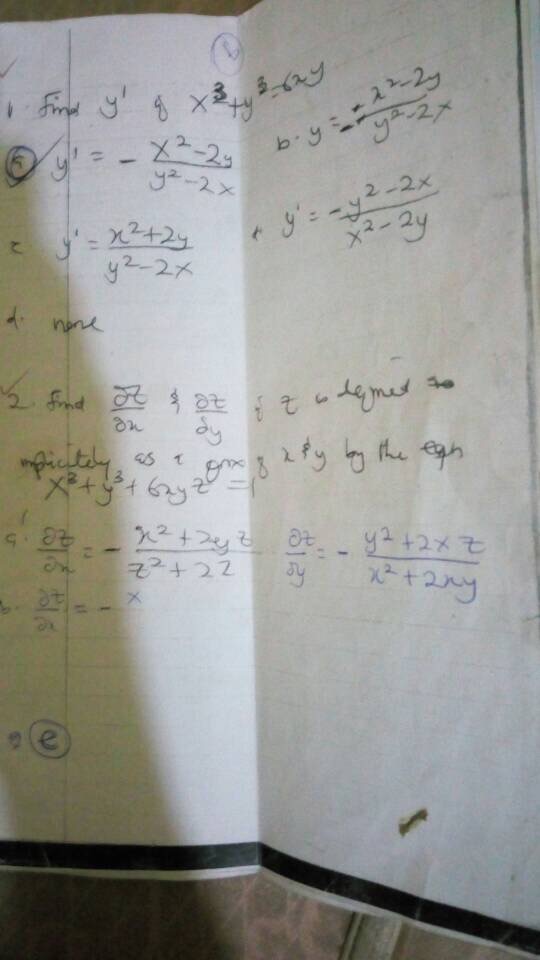 1. Find y' if x³+y³=6xy
a y' = - x²-2y / y²-2x b. y = - x²-2y / y²-2x
c y' = x²+2y / y²-2x y' = - y²-2x / x²-2y
d. none
2. Find ∂z/∂x & ∂z/∂y if z is defined
implicitely as a of x & y by the eqn
x³+y³+6xyz = 1
a. ∂z/∂x = - x²+2yz / z²+2z ∂z/∂y = - y²+2xz / x²+2xy
b. ∂z/∂x = - x
e